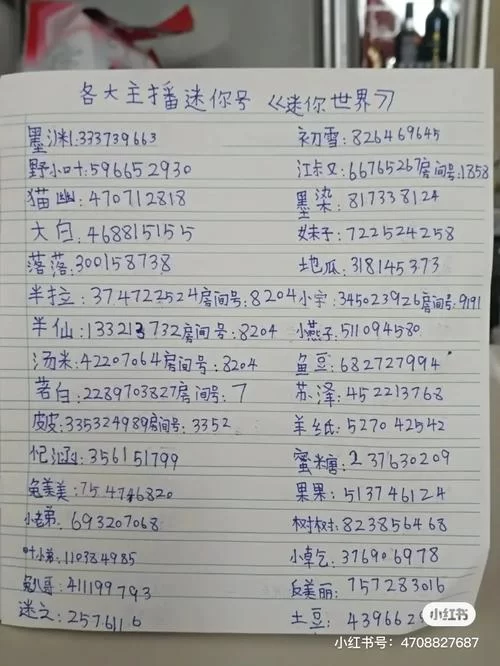 各大主播迷你号《迷你世界》
墨渊:333739663 初雪:826469645
野小叶:596652930 江叔又:6676526房间号:1858
猫幽:470712818 墨染:817338124
大白:468815155 妹子:722524258
落落:300158738 地瓜:318145373
半拉:374722524房间号:8204 小宇:345023926房间号:9191
半仙:133213732房间号:8204 小燕子:511094580
汤米:42207064房间号:8204 鱼豆:682727994
茗白:2289703827房间号:7 苏泽:452213768
皮皮:335324989房间号:3352 羊纸:527042542
忆涵:356151799 蜜糖:237630209
兔美美:754746820 果果:513746124
小老弟:693207068 树树:823856468
叶小弟:110384985 小卓乞:376906978
兔八哥:411199793 反美丽:757283016
迷之:2576116 土豆:43966
小红书
小红书号:4708827687